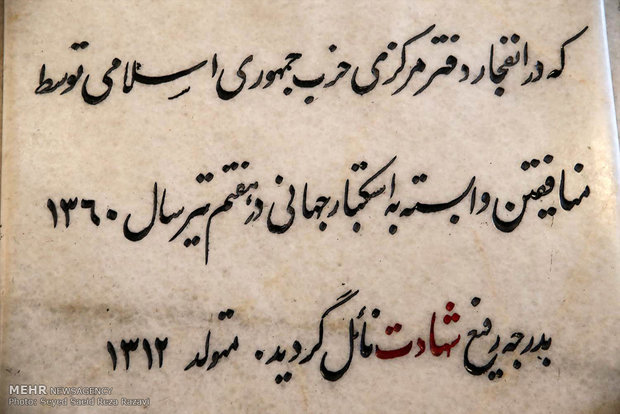 که در انفجار دفتر مرکزی حزب جمهوری اسلامی توسط
منافقین وابسته به استکبار جهانی در هفتم تیر سال ۱۳۶۰
بدرجه رفیع شهادت نائل گردید. متولد ۱۳۱۲
MEHR NEWSAGENCY
Photo: Seyed Saeid Reza Razavi